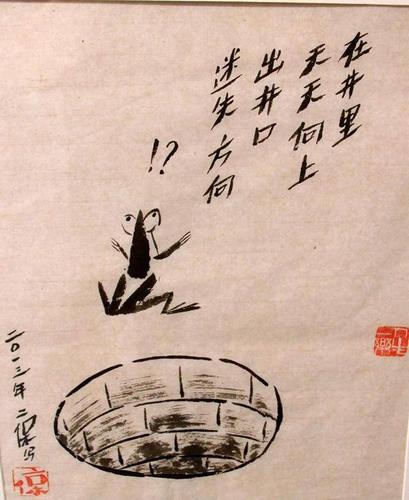 在井里
天天向上
出井口
迷失方向
!?
二〇一三年 二保写